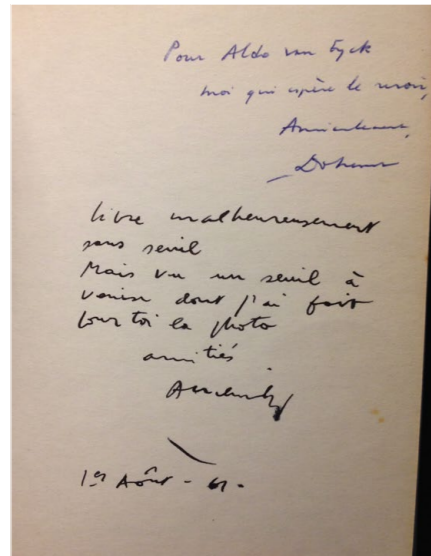 Pour Aldo van Eyck
moi qui espère le revoir,
Amicalement,
livre malheureusement
sans seuil
Mais vu un seuil à
venise dont j'ai fait
pour toi la photo
amitiés
1er Août - 61 -